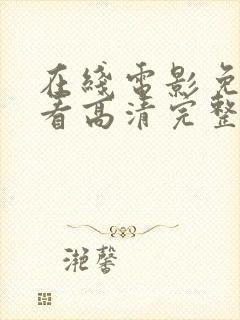 在綫電影免
看高清完整
滟馨